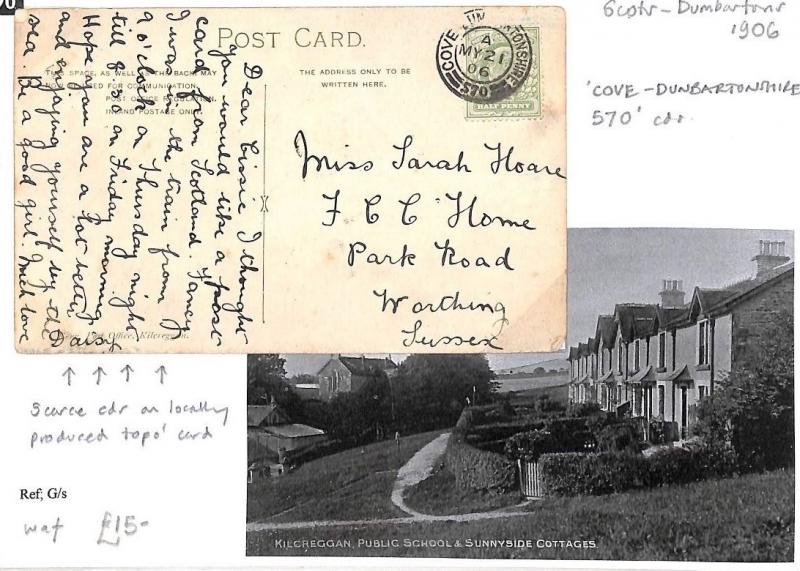 POST CARD.
THIS SPACE, AS WELL AS THE BACK, MAY
NOW BE USED FOR COMMUNICATION.
POST OFFICE REGULATION.
INLAND POSTAGE ONLY.
THE ADDRESS ONLY TO BE
WRITTEN HERE.
Dear Cissie I thought
you would like a post
card from Scotland. Fancy
I was in the train from
9 o'clock on Thursday night
till 8.30 on Friday morning
Hope you are a lot better
and enjoying yourself by the
sea. Be a good girl. Much love
Daisy
Post Office, Kilcreggan.
COVE DUMBARTONSHIRE
A
MY 21
06
570
HALF PENNY
Miss Sarah Hoare
F C C Home
Park Road
Worthing
Sussex
Dumbartons
1906
'COVE-DUNBARTONSHIRE
570' cdr.
↑ ↑ ↑ ↑
Scarce cdr on locally
produced topo' card
Ref; G/s
waf £15-
KILCREGGAN, PUBLIC SCHOOL & SUNNYSIDE COTTAGES.